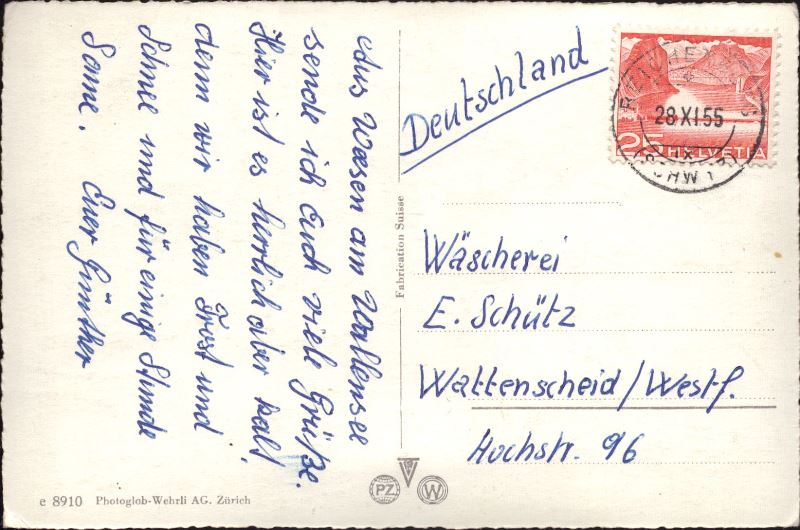 Aus Wesen am Wallensee
sende ich Euch viele Grüße.
Hier ist es herrlich aber kalt,
denn wir haben Frost und
Schnee und für einige Stunde
Sonne. Euer Günther
Deutschland
28.XI.55
25 HELVETIA
(SCHWYZ)
Fabrication Suisse
Wäscherei
E. Schütz
Wattenscheid/Westf.
Hochstr. 96
PZ
W
e 8910 Photoglob-Wehrli AG. Zürich